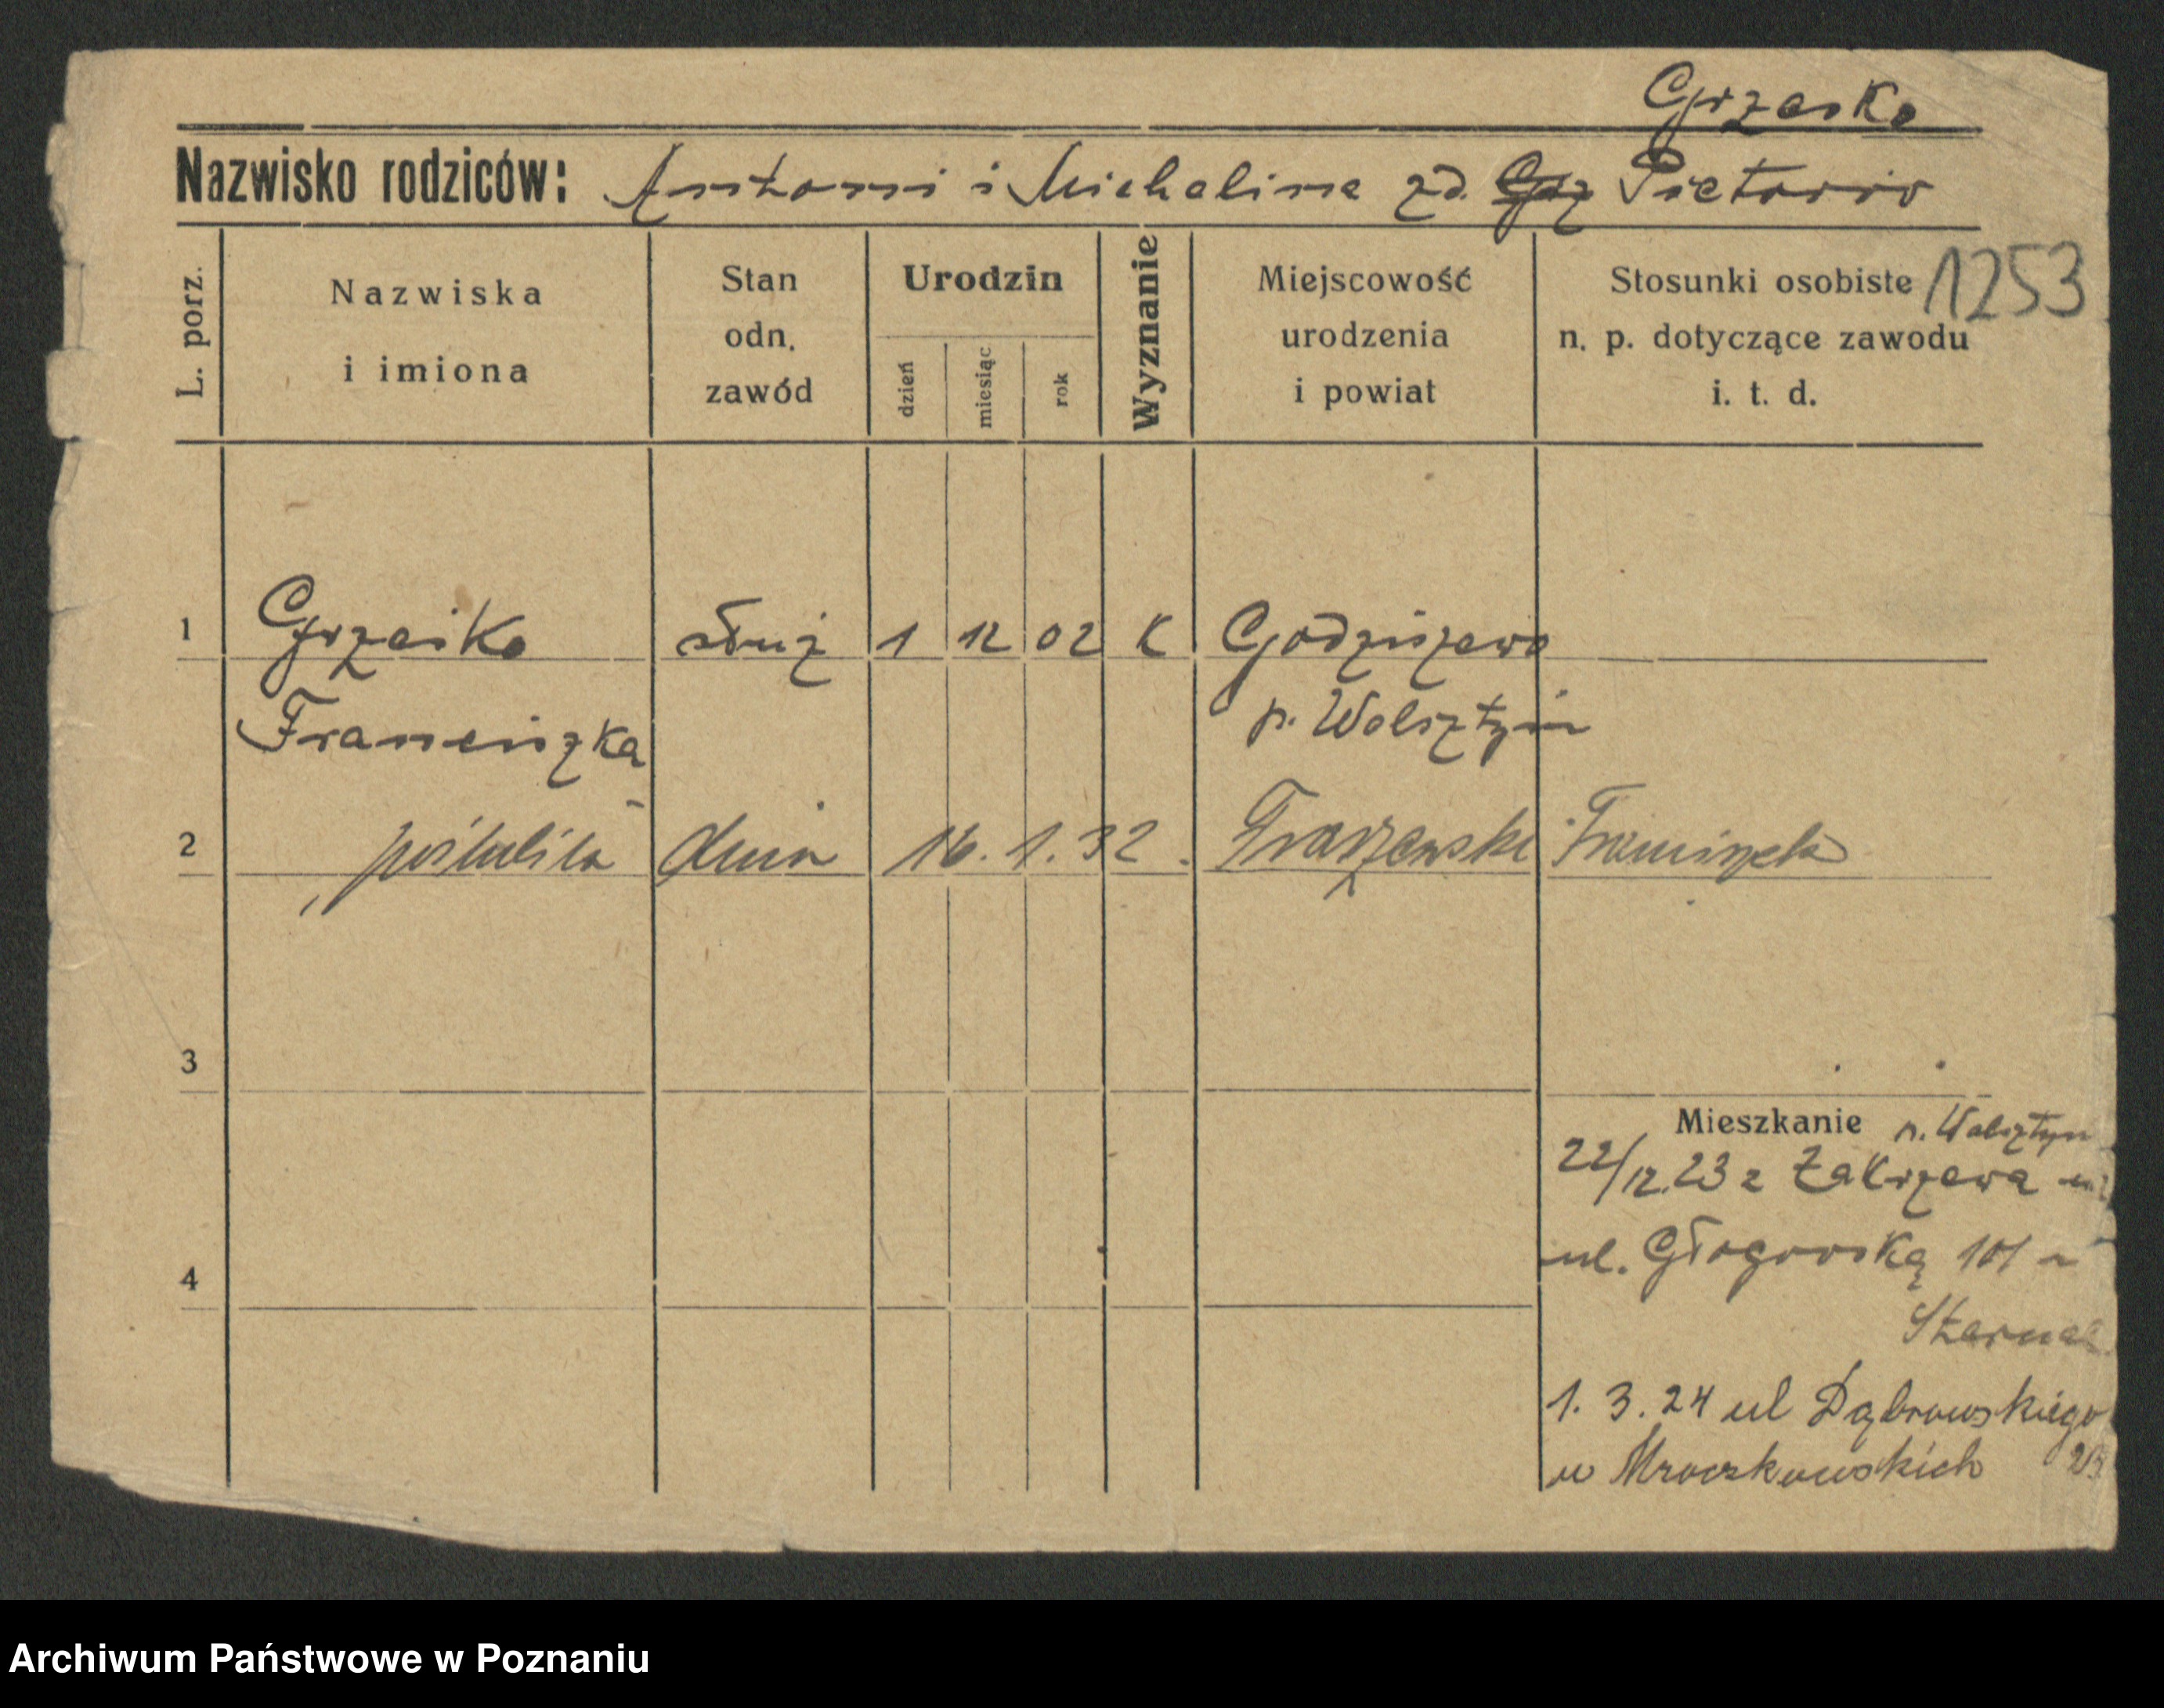 Grześko
Nazwisko rodziców: Antoni i Michalina zd. Pietorrio
L. porz.
Nazwiska
i imiona
Stan
odn.
zawód
Urodzin
dzień
miesiąc
rok
Wyznanie
Miejscowość
urodzenia
i powiat
Stosunki osobiste
n. p. dotyczące zawodu
i. t. d.
1253
1 Grześko służ 1 12 02 K Godziszewo
Franciszka p. Wolsztyn
2 poślubiła dnia 16.1.32. Franciszek
3
Mieszkanie p. Wolsztyn
22/12.23 z Zakrzewa
4
ul. Głogowską 101 u
1. 3. 24 ul Dąbrowskiego
u Mroczkowskich
Archiwum Państwowe w Poznaniu